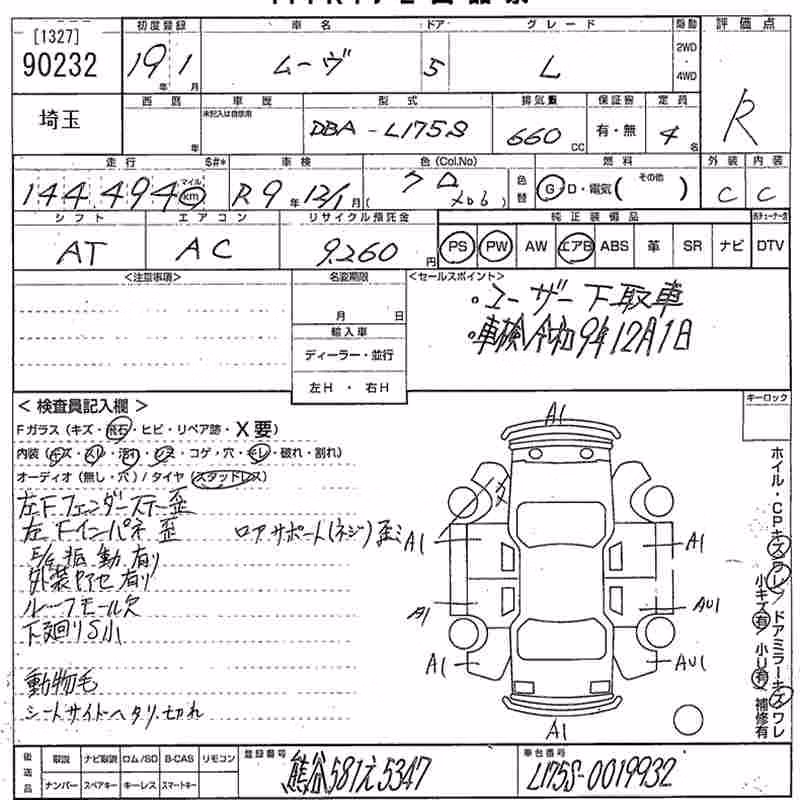 [1327]
90232
埼玉
初度登録 車名 ドア グレード 駆動 評価点
19年 1月 ムーヴ 5 L 2WD・4WD R
西暦 車歴 型式 排気量 保証書 定員
年 未記入は自家用 DBA-L175S 660cc 有・無 4名
走行 $#* 車検 色(Col.No) 燃料 外装 内装
144,494 マイル km R9年12/1月 クロ 色替 G・D・電気( その他 ) C C
シフト エアコン リサイクル預託金 純正装備品
AT AC 9,260円 PS PW AW エアB ABS 革 SR ナビ DTV
<注意事項> 名変期限 <セールスポイント>
月 日 ・ユーザー下取車
輸入車 ・車検令和9年12月1日
ディーラー・並行
左H・右H
<検査員記入欄> キーロック
Fガラス(キズ・飛石・ヒビ・リペア跡・X要)
内装(キズ・スレ・汚れ・シミ・コゲ・穴・キレ・破れ・割れ)
オーディオ(無し・穴)/タイヤ(スタッドレス)
左Fフェンダーステー歪
左Fインパネ歪 ロアサポート(ネジ)歪ミ
E/G振動有り
外装アセ有り
ルーフモール欠
下廻りS小
動物毛
シートサイドヘタリ.切れ
A1
X
A1 A1
A1 AU1
A1 AU1
A1
ホイル・CPキズワレ/ドアミラーキズワレ
小キズ有 小U有 補修有
後送品 取説 ナビ取説 ロム/SD B-CAS リモコン 登録番号 車台番号
ナンバー スペアキー キーレス スマートキー 熊谷581え5347 L175S-0019932